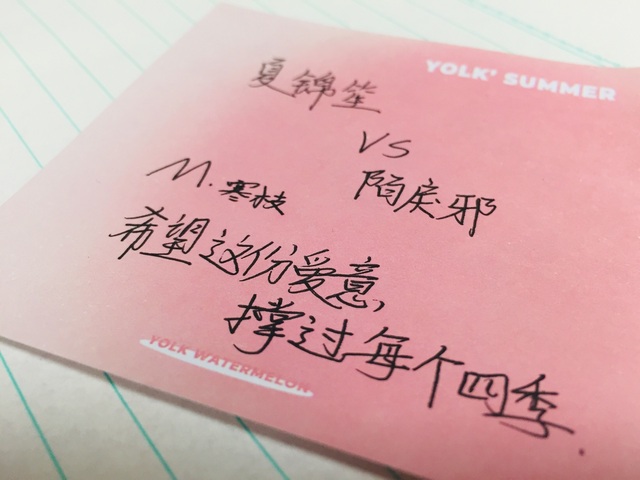 YOLK' SUMMER
夏锦笙
VS
陌戾邪
M.寒枝
希望这份爱意,
撑过每个四季.
YOLK WATERMELON